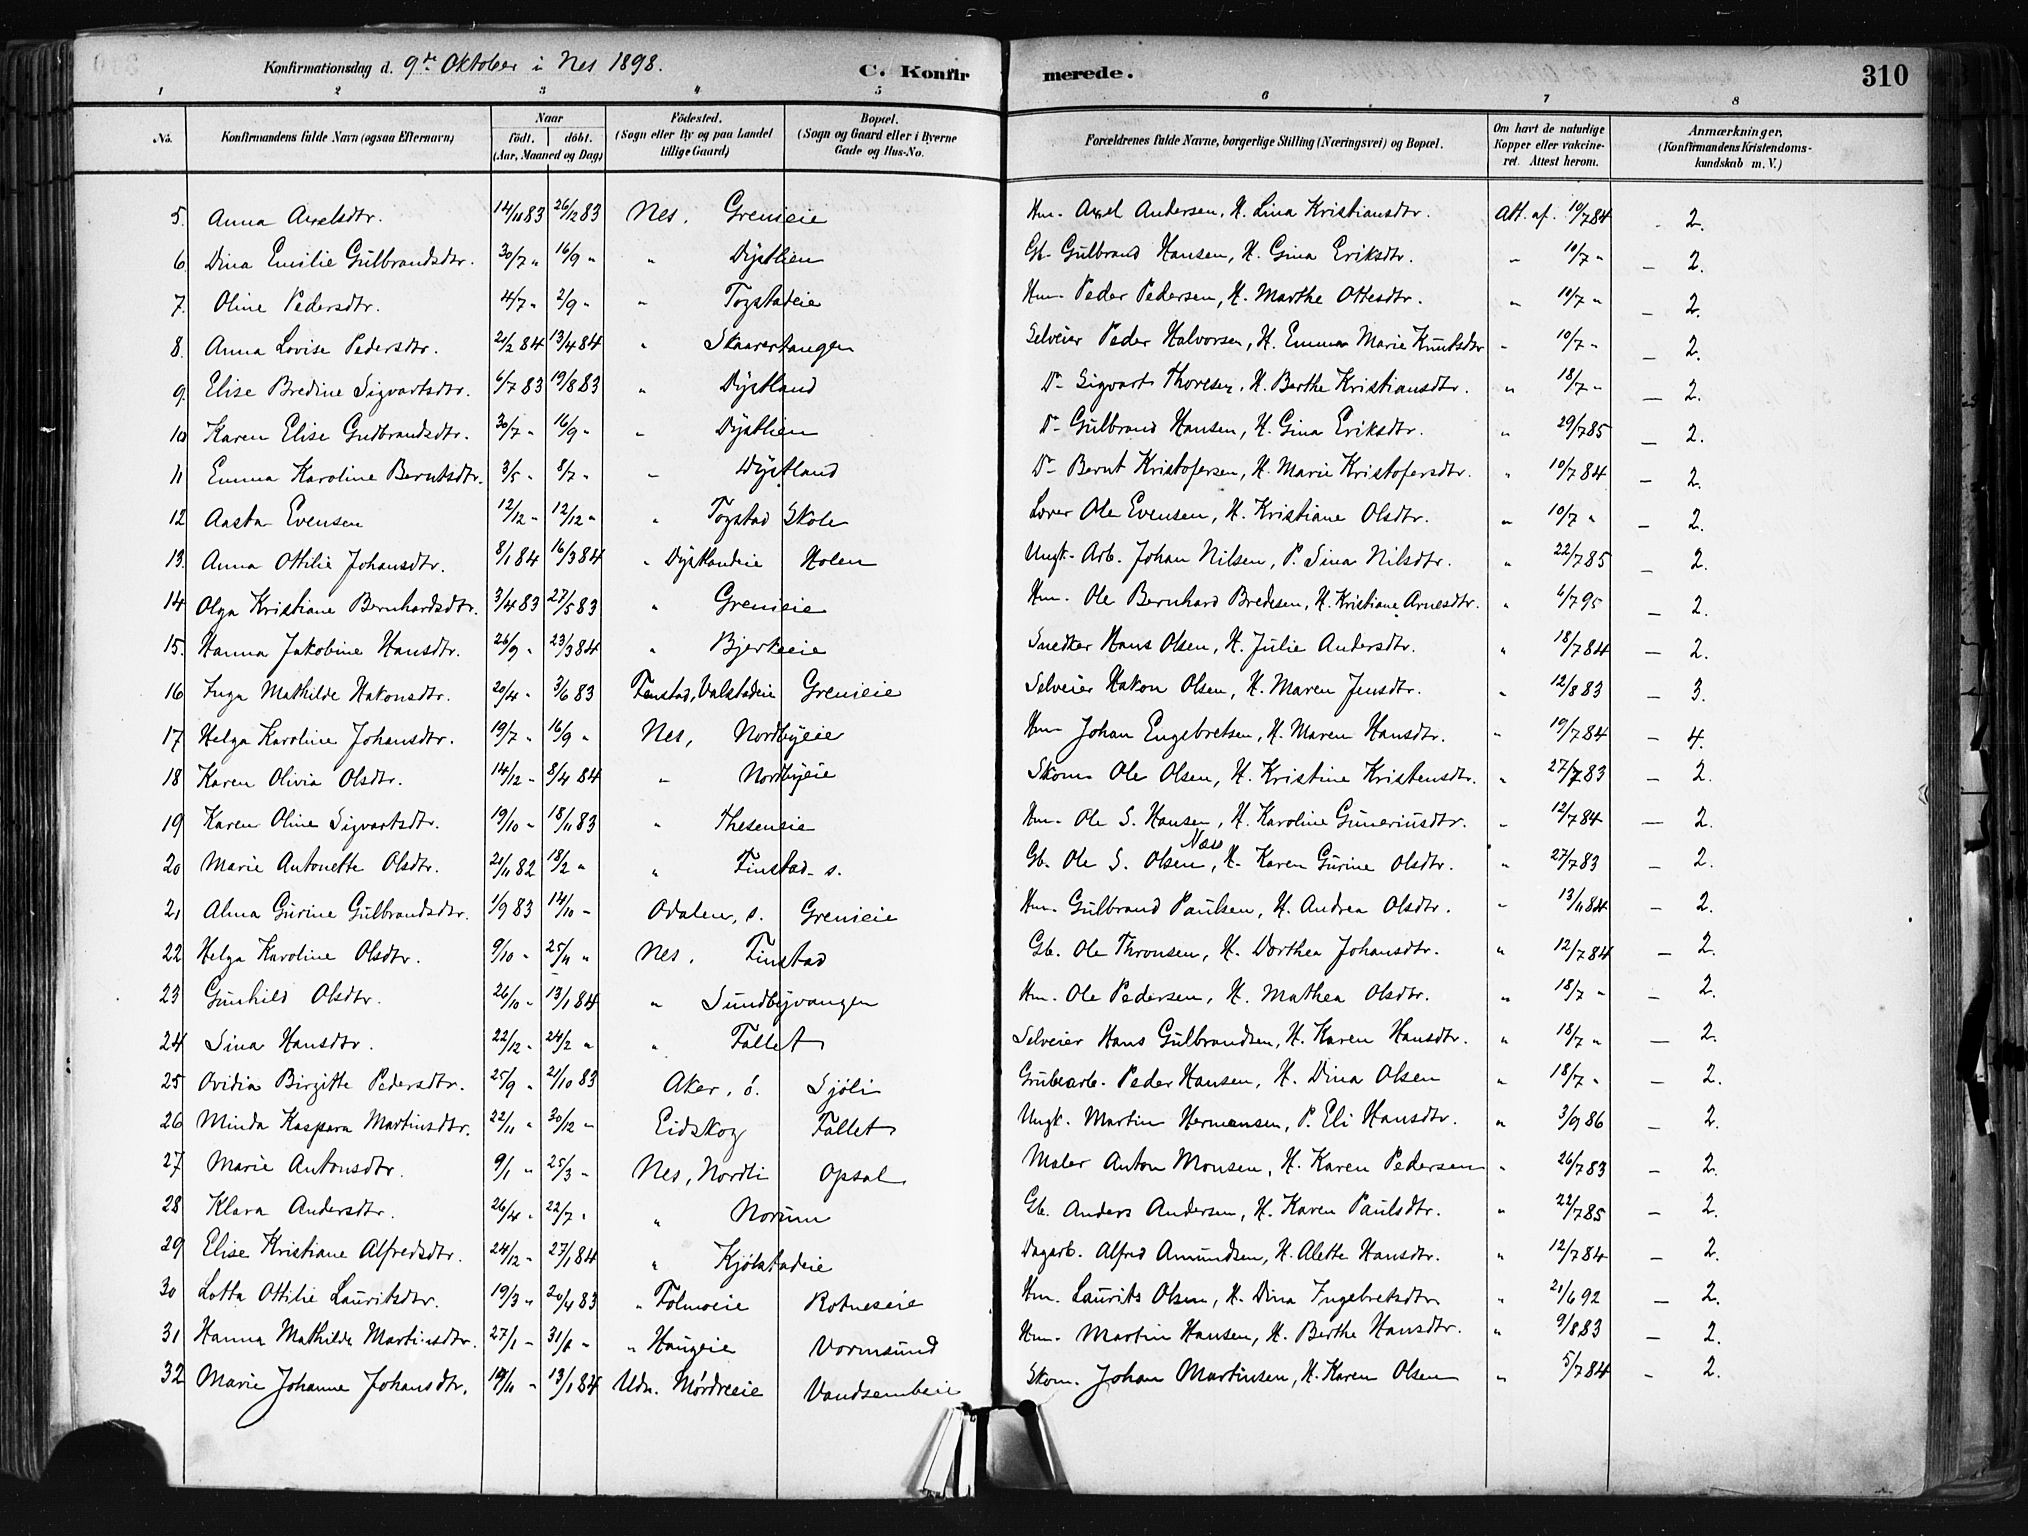 Konfirmationsdag d. 9de Oktober i Nes 1898. C. Konfirmerede. 310
1 2 3 4 5 6 7 8
No. Konfirmandens fulde Navn (ogsaa Efternavn) Naar födt. döbt. (Aar, Maaned og Dag) Födested. (Sogn eller By og paa Landet tillige Gaard) Bopæl. (Sogn og Gaard eller i Byerne Gade og Hus-No. Forældrenes fulde Navne, borgerlige Stilling (Næringsvei) og Bopæl. Om havt de naturlige Kopper eller vakcineret. Attest herom. Anmærkninger, (Konfirmandens Kristendomskundskab m. V.)
5. Anna Axelsdtr. 14/11 83 26/12 83 Nes. Grenieie Hm. Axel Andersen, H. Lina Kristiansdtr. Att. af. 10/7 84 - 2.
6. Dina Emilie Gulbrandsdtr. 30/7 " 16/9 " " Dystlien Gb. Gulbrand Hansen, H. Gina Eriksdtr. " 10/7 " - 2.
7. Oline Pedersdtr. 4/7 " 2/9 " " Togstadeie Hm. Peder Pedersen, H. Marthe Ottesdtr. " 10/7 " - 2.
8. Anna Lovise Pedersdtr. 21/2 84 13/4 84 " Skaarertangen Selveier Peder Halvorsen, H. Emma Marie Knutsdtr " 10/7 " - 2.
9. Elise Bredine Sigvartsdtr. 6/7 83 19/8 83 " Dystland Do Sigvart Thoresen, H. Berthe Kristiansdtr. " 18/7 " - 2.
10 Karen Elise Gudbrandsdtr. 30/7 " 16/9 " " Dystlien Do Gulbrand Hansen, H. Gina Eriksdtr. " 29/7 85 - 2.
11 Emma Karoline Berntsdtr. 3/5 " 8/7 " " Dystland Do Bernt Kristofersen, H. Marie Kristofersdtr. " 10/7 84 - 2.
12 Aasta Evensen 12/12 " 12/12 " " Togstad Skole Lærer Ole Evensen, H. Kristiane Olsdtr. " 10/7 " - 2.
13. Anna Ottilie Johansdtr. 8/1 84 16/3 84 " Dystlandeie Holen Ungk. Arb. Johan Nilsen, P. Sina Nilsdtr. " 22/7 85 - 2.
14 Olga Kristiane Bernhardsdtr. 3/4 83 27/5 83 " Grenieie Hm. Ole Bernhard Bredesen, H. Kristiane Arnesdtr. " 6/7 95 - 2.
15. Hanna Jakobine Hansdtr. 26/9 " 23/3 84 " Bjerkeie Snedker Hans Olsen, H. Julie Andersdtr. " 18/7 84 - 2.
16 Inga Mathilde Hakonsdtr. 20/4 " 3/6 83 Fenstad, Valstadeie Grenieie Selveier Hakon Olsen, H. Maren Jensdtr. " 12/8 83 - 3.
17 Helga Karoline Johansdtr. 19/7 " 16/9 " Nes, Nordbyeie Hm Johan Engebretsen, H. Maren Hansdtr. " 19/7 84 - 4.
18 Karen Olivia Olsdtr. 14/12 " 8/4 84 " Nordbyeie Skom. Ole Olsen, H. Kristine Kristensdtr. " 27/7 83 - 2.
19 Karen Oline Sigvartsdtr. 19/10 " 18/11 83 " Theseneie Hm. Ole S. Hansen, H. Karoline Guneriusdtr. " 12/7 84 - 2.
20 Marie Antonette Olsdtr. 21/11 82 18/2 " " Finstad s. Gb. Ole S. Olsen Næs, H. Karen Gurine Olsdtr. " 27/7 83 - 2.
21 Alma Gurine Gulbrandsdtr. 1/9 83 14/10 " Odalen, s. Grenieie Hm. Gulbrand Paulsen, H. Andrea Olsdtr. " 13/11 84 - 2.
22 Helga Karoline Olsdtr. 9/10 " 25/11 " Nes. Finstad Gb. Ole Thronsen, H. Dorthea Johansdtr. " 12/7 84 - 2.
23 Gunhild Olsdtr. 26/10 " 13/1 84 " Sundbyvangen Hm. Ole Pedersen, H. Mathea Olsdtr. " 18/7 " - 2.
24 Sina Hansdtr. 22/12 " 24/2 " " Fallet Selveier Hans Gulbrandsen, H. Karen Hansdtr. " 18/7 " - 2.
25 Ovidia Birgitte Pedersdtr. 25/9 " 21/10 83 Aker, ö. Sjøli Grubearb. Peder Hansen, H. Dina Olsen " 18/7 " - 2.
26 Minda Kaspara Martinsdtr. 22/11 " 30/12 " Eidskog Fallet Ungk. Martin Hermansen, P. Eli Hansdtr. " 3/9 86 - 2.
27 Marie Antonsdtr. 9/1 " 25/3 " Nes, Nordli Opsal Maler Anton Monsen, H. Karen Pedersen " 26/7 83 - 2.
28 Klara Andersdtr. 26/4 " 22/7 " " Norum Gb. Anders Andersen, H. Karen Paulsdtr. " 22/7 85 - 2.
29 Elise Kristiane Alfredsdtr. 24/12 " 27/1 84 " Kjølstadeie Dagarb. Alfred Amundsen, H. Alette Hansdtr. " 12/7 84 - 2.
30 Lotta Ottilie Lauritsdtr. 19/3 " 20/4 83 " Folmoeie Rotneseie Hm. Laurits Olsen, H. Dina Ingebretsdtr " 21/6 92 - 2.
31 Hanna Mathilde Martinsdtr. 27/1 " 31/6 " " Haugeie Vormsund Hm. Martin Hansen, H. Berthe Hansdtr. " 9/8 83 - 2.
32 Marie Johanne Johansdtr. 19/11 " 13/1 84 Udn. Mørdreeie Vandsembeie Skom. Johan Martinsen, H. Karen Olsen " 5/7 84 - 2.